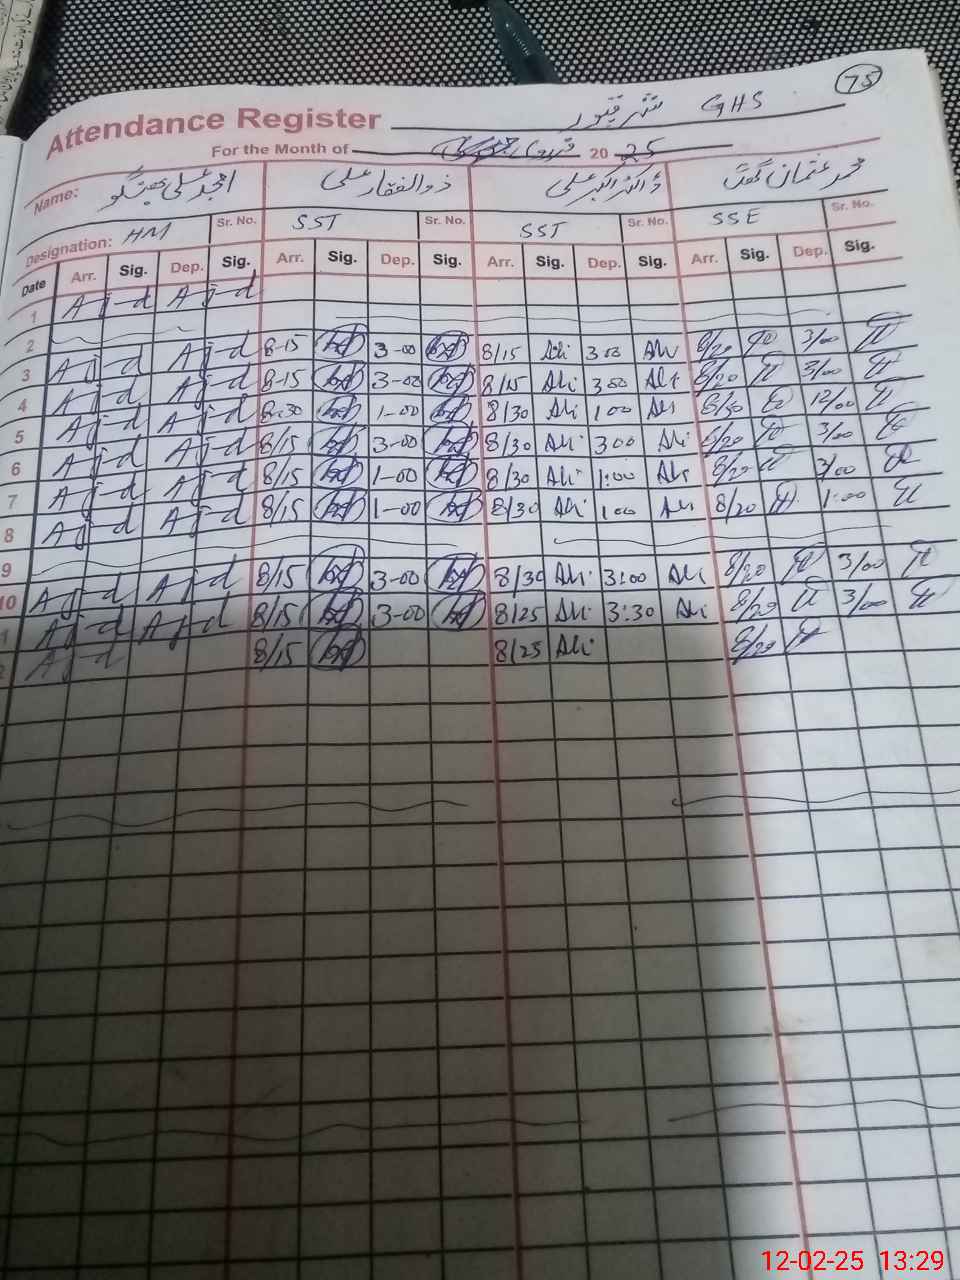 75
Attendance Register شرقپور GHS
For the Month of فروری 2025
Name: امجد علی ذوالفقار علی ڈاکٹر اکبر علی محمد عثمان
Designation: HM Sr. No. SST Sr. No. SST Sr. No. SSE Sr. No.
Date Arr. Sig. Dep. Sig. Arr. Sig. Dep. Sig. Arr. Sig. Dep. Sig. Arr. Sig. Dep. Sig.
1 A-j-d A-j-d
2
3 A-j-d A-j-d 8-15 3-00 8/15 Ali 300 Ali 8/20 3/00
4 A-j-d A-j-d 8-15 3-00 8/15 Ali 300 Ali 8/20 3/00
5 A-j-d A-j-d 8-30 1-00 8/30 Ali 100 Ali 8/30 12/00
6 A-j-d A-j-d 8/15 3-00 8/30 Ali 300 Ali 8/20 3/00
7 A-j-d A-j-d 8/15 1-00 8/30 Ali 1:00 Ali 8/20 3/00
8 A-j-d A-j-d 8/15 1-00 8/30 Ali 100 Ali 8/20 1:00
9
10 A-j-d A-j-d 8/15 3-00 8/30 Ali 3:00 Ali 8/20 3/00
1 A-j-d A-j-d 8/15 3-00 8/25 Ali 3:30 Ali 8/20 3/00
2 A-j-d 8/15 8/25 Ali 8/20
12-02-25 13:29